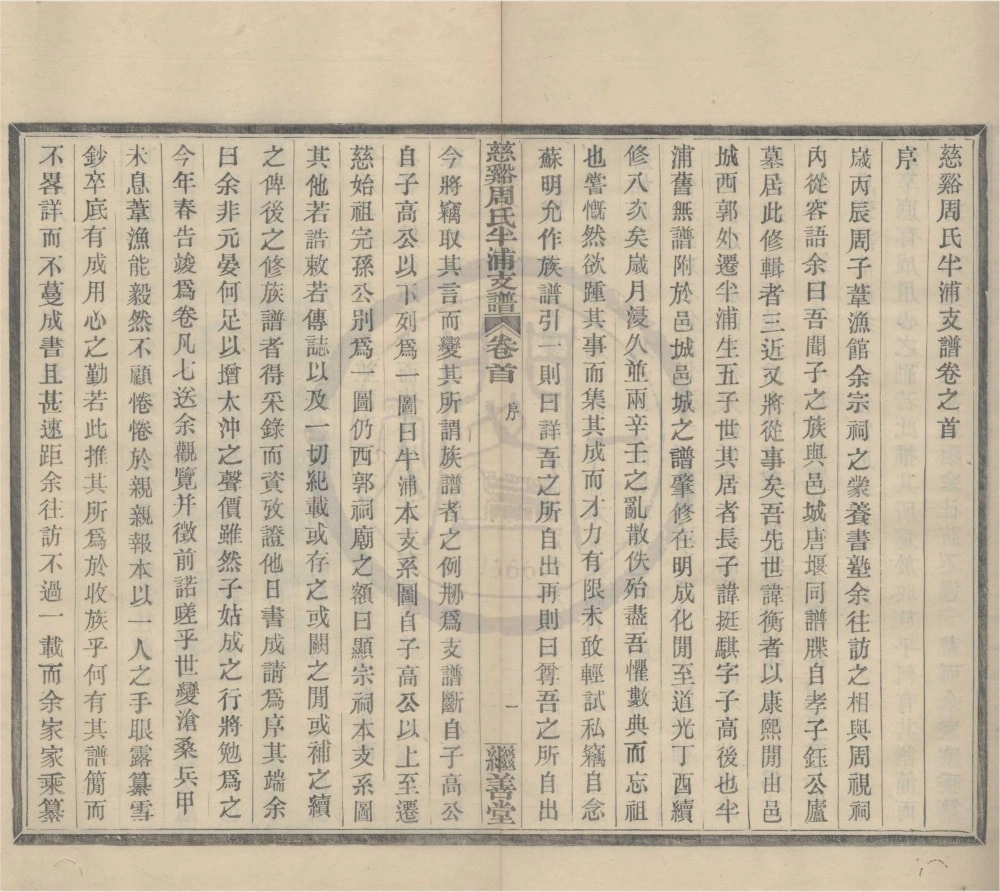 慈谿周氏半浦支譜卷之首
序
歲丙辰周子葦漁館余宗祠之蒙養書塾余往訪之相與周視祠
內從容語余曰吾聞子之族與邑城唐堰同譜牒自孝子鈺公廬
墓居此修輯者三近又將從事矣吾先世諱衡者以康熙閒由邑
城西郭外遷半浦生五子世其居者長子諱挺騏字子高後也半
浦舊無譜附於邑城邑城之譜肇修在明成化閒至道光丁酉續
修八次矣歲月浸久並兩辛壬之亂散佚殆盡吾懼數典而忘祖
也嘗慨然欲踵其事而集其成而才力有限未敢輕試私竊自念
蘇明允作族譜引一則曰詳吾之所自出再則曰尊吾之所自出
慈谿周氏半浦支譜 卷首 序 一 繼善堂
今將竊取其言而變其所謂族譜者之例剏爲支譜斷自子高公
自子高公以下列爲一圖曰半浦本支系圖自子高公以上至遷
慈始祖完孫公別爲一圖仍西郭祠廟之額曰顯宗祠本支系圖
其他若誥敕若傳誌以及一切紀載或存之或闕之閒或補之續
之俾後之修族譜者得采錄而資攷證他日書成請爲序其端余
曰余非元晏何足以增太沖之聲價雖然子姑成之行將勉爲之
今年春告竣爲卷凡七送余觀覽并徵前諾嗟乎世變滄桑兵甲
未息葦漁能毅然不顧惓惓於親親報本以一人之手眼露纂雪
鈔卒底有成用心之勤若此推其所爲於收族乎何有其譜簡而
不畧詳而不蔓成書且甚速距余往訪不過一載而余家家乘纂